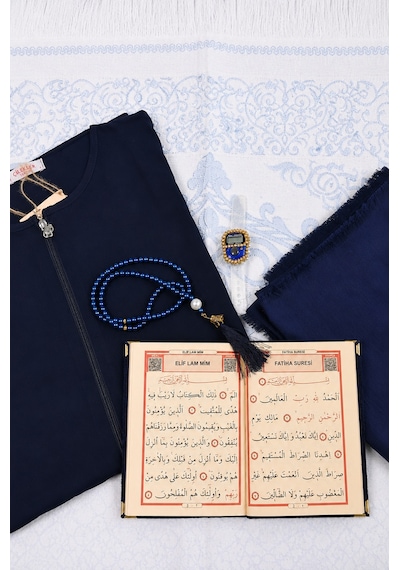 ELİF LAM MİM
ELİF LAM MİM
الم ۞ ذٰلِكَ الْكِتَابُ لَا رَيْبَ فِيهِ
هُدًى لِلْمُتَّقِينَ ۞ الَّذِينَ يُؤْمِنُونَ
بِالْغَيْبِ وَيُقِيمُونَ الصَّلٰوةَ وَمِمَّا رَزَقْنَاهُمْ
يُنْفِقُونَ ۞ وَالَّذِينَ يُؤْمِنُونَ بِمَا أُنْزِلَ
إِلَيْكَ وَمَا أُنْزِلَ مِنْ قَبْلِكَ وَبِالْاٰخِرَةِ
هُمْ يُوقِنُونَ ۞ أُولٰئِكَ عَلٰى هُدًى مِنْ
رَبِّهِمْ وَأُولٰئِكَ هُمُ الْمُفْلِحُونَ
FATİHA SURESİ
FATİHA SURESİ
اَلْحَمْدُ لِلّٰهِ رَبِّ الْعَالَمِينَ
الرَّحْمٰنِ الرَّحِيمِ ۞ مَالِكِ يَوْمِ
الدِّينِ ۞ إِيَّاكَ نَعْبُدُ وَإِيَّاكَ نَسْتَعِينُ
اِهْدِنَا الصِّرَاطَ الْمُسْتَقِيمَ
صِرَاطَ الَّذِينَ أَنْعَمْتَ عَلَيْهِمْ غَيْرِ
الْمَغْضُوبِ عَلَيْهِمْ وَلَا الضَّالِّينَ